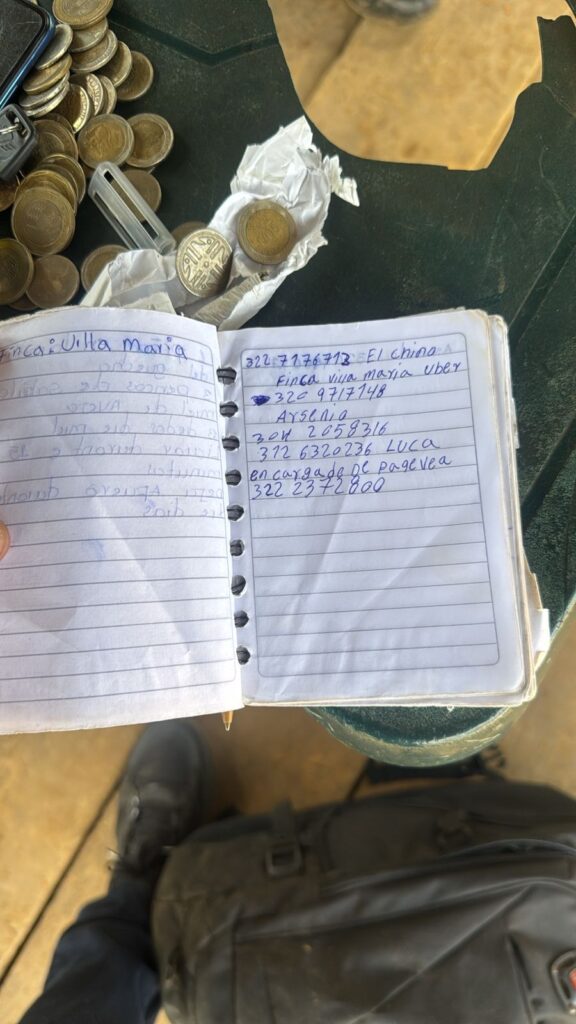 Finca: Villa maria
322 7176713 El chino
Finca villa maria uber
320 9717148
Arsenio
304 2058316
312 6320236 LUCA
encargado De pagevea
322 2372800